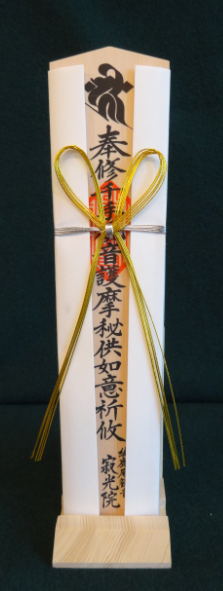 奉修千手観音護摩秘供如意祈攸
寂光院